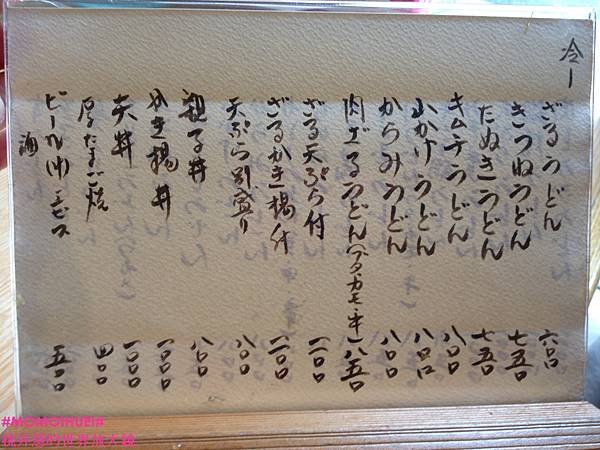 冷ー
ざるうどん 六〇〇
きつねうどん 七五〇
たぬきうどん 七五〇
キムチうどん 八〇〇
山かけうどん 八〇〇
からみうどん 八〇〇
肉ざるうどん(ブタ、カモ、牛) 八五〇
ざる天ぷら付 一一〇〇
ざるかき揚付 一一〇〇
天ぷら別盛り 八〇〇
親子丼 八〇〇
かき揚丼 一〇〇〇
天丼 一〇〇〇
厚たまご焼 四〇〇
ビール(中)エビス 五〇〇
酒
#MOMOIHUEI#